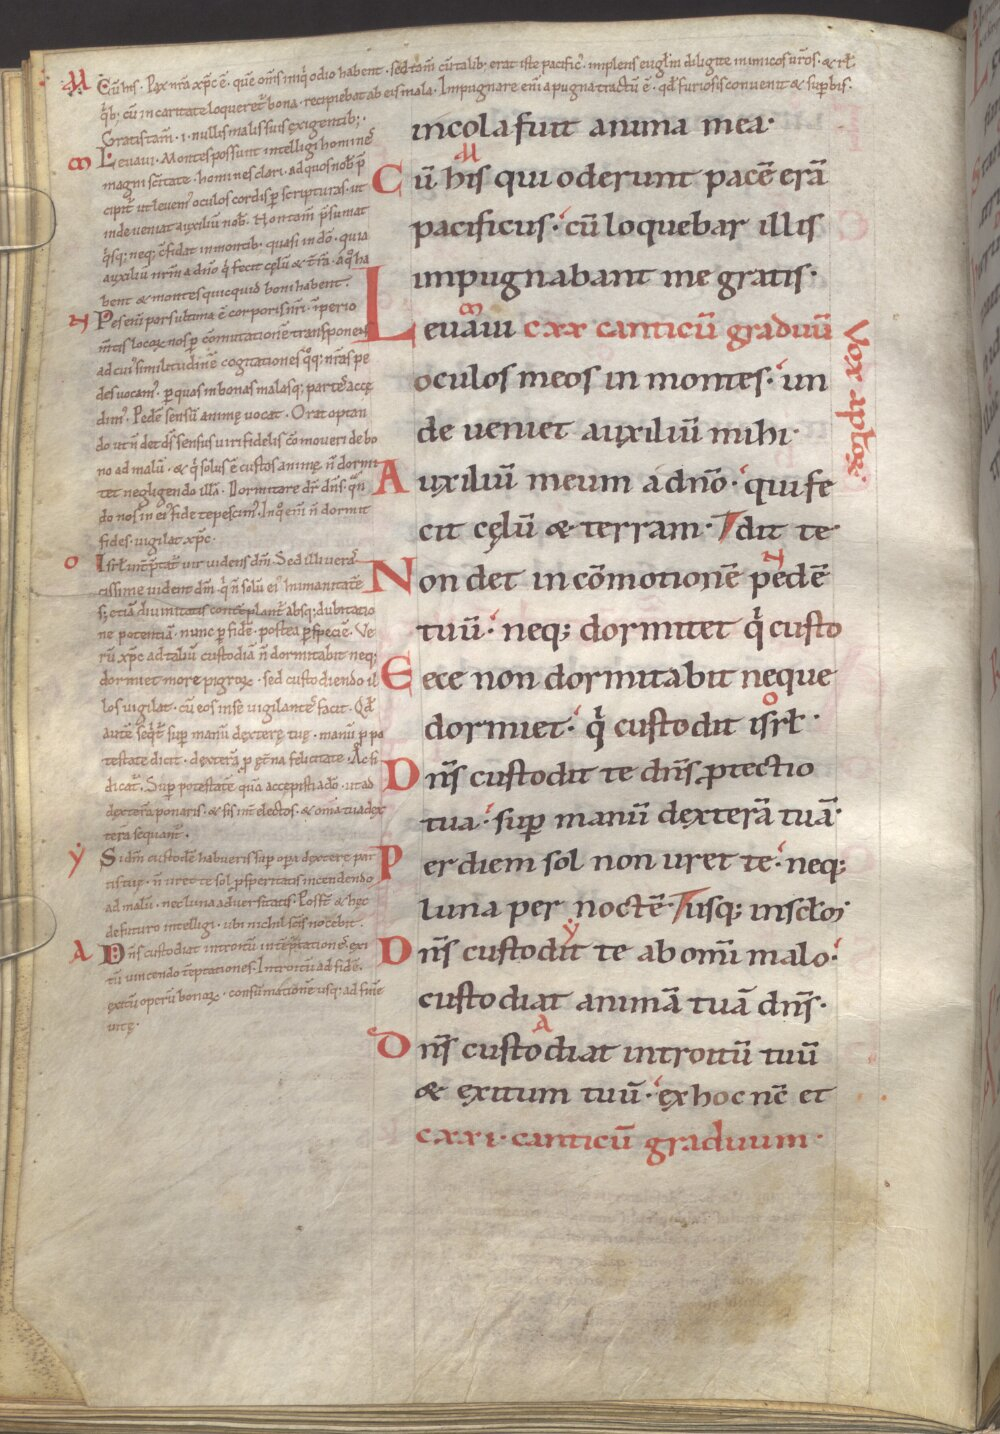 Cũ his. Pax nr̃a xp̃c ẽ. quẽ om̃s iniq̓ odio habent. sed tam̃ cũ talib; erat iste pacific̓. implens eugłm diligite inimicos ur̃os. & rł.
q̓b; cũ in caritate loqueret̓ bona. recipiebat ab eis mala. Impugnare eni a pugna tractũ ẽ. qđ furiosis conuenit & supbis.
Gratis tam̃. i. nullis malis suis exigentib;.
Leuaui. Montes possunt intelligi hominẽ
magni sc̃itate. homines clari. ad quos nob̃ p̃
cipit̃ ut leuem̓ oculos cordis p scripturas. ut
inde ueniat auxiliũ nob̃. Non tam̃ p̃sumat
q̓sq; neq; c̃fidat in montib. quasi in dõ. quia
auxiliũ nr̃m a dn̄o q̓ fecit cęlũ & t̃rã. a q̓ ha
bent & montes quicquid boni habent.
Pes eni pars ultima ẽ corporis nr̃i. ĩperio
m̃tis locoꝝ nos p cõmutationẽ transponens
ad cui̓ similitudinẽ cogitationes q̓q; nr̃as pe
des uocam̓. p quas in bonas malasq; partes accę
dim̓. Pedẽ sensũ animę uocat. Orat optan
do ut ñ det ds̃ sensus uiri fidelis cõmoueri de bo
no ad malũ. & q̓ solus ẽ custos animę. ñ dormi
tet negligendo illã. Dormitare dr̃ dn̄s. q̃n
do nos in ei̓ fide tepescim̓. In q̓ eni ñ dormit
fides. uigilat xp̃c.
Isrł int̃p̃tat̃ uir uidens dm̃. Sed illi uera
cissime uident dm̃. q̓ ñ solũ ei̓ humanitatẽ
s; etiã diuinitatis contẽplant̃ absq; dubitatio
ne potentiã. nunc p fidẽ. postea p spẽciẽ. Ve
rũ xp̃c ad taliũ custodiã ñ dormitabit neq;
dormiet more pigroꝝ. sed custodiendo il
los uigilat. cũ eos in se uigilantes facit. Qđ
autẽ seq̃t̃ sup manũ dexterę tuę. manũ p po
testate dicit. dexterã p ęt̃na felicitate. Ac si
dicat̃. Sup potestatẽ quã accepisti a dõ. ut ad
dexterã ponaris. & sis int̃ electos. & om̃ia tua dex
tera sequant̃.
Si dm̃ custodẽ habueris sup opa dexterę par
tis tuę. ñ uret te sol psperitatis incendendo
ad malũ. nec luna aduersitatis. Post̃ & hęc
de futuro intelligi. ubi nichil sc̃is nocebit.
Dn̄s custodiat introitũ int̃ẽptationẽ. exi
tũ uincendo tẽptationes. Introitũ ad fidẽ.
exitũ operũ bonaꝝ. consũmationẽ usq; ad finẽ
uitę.
incola fuit anima mea.
Cũ his qui oderunt pacẽ erã
pacificus. cũ loquebar illis
impugnabant me gratis.
Leuaui cxx canticũ graduũ
oculos meos in montes. un
de ueniet auxiliũ mihi.
Auxiliũ meum a dn̄o. qui fe
cit cęlũ & terram. dit te
Non det in cõmotionẽ pedẽ
tuũ. neq; dormitet q̓ custo
Ecce non dormitabit neque
dormiet. q̓ custodit isrł.
Dn̄s custodit te dn̄s ptectio
tua. sup manũ dexterã tuã.
Per diem sol non uret te. neq;
luna per noctẽ. usq; in sc̃lm
Dn̄s custodit te ab om̃i malo.
custodiat animã tuã dn̄s.
Dn̄s custodiat introitũ tuũ
& exitum tuũ. ex hoc nc̃ et
cxxi. canticũ graduum.
Vox aplꝯꝝ